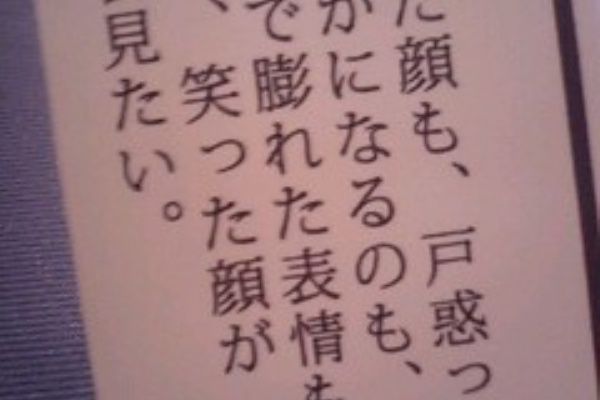 た顔も、戸惑っ
かになるのも、
で膨れた表情も
、笑った顔が
見たい。